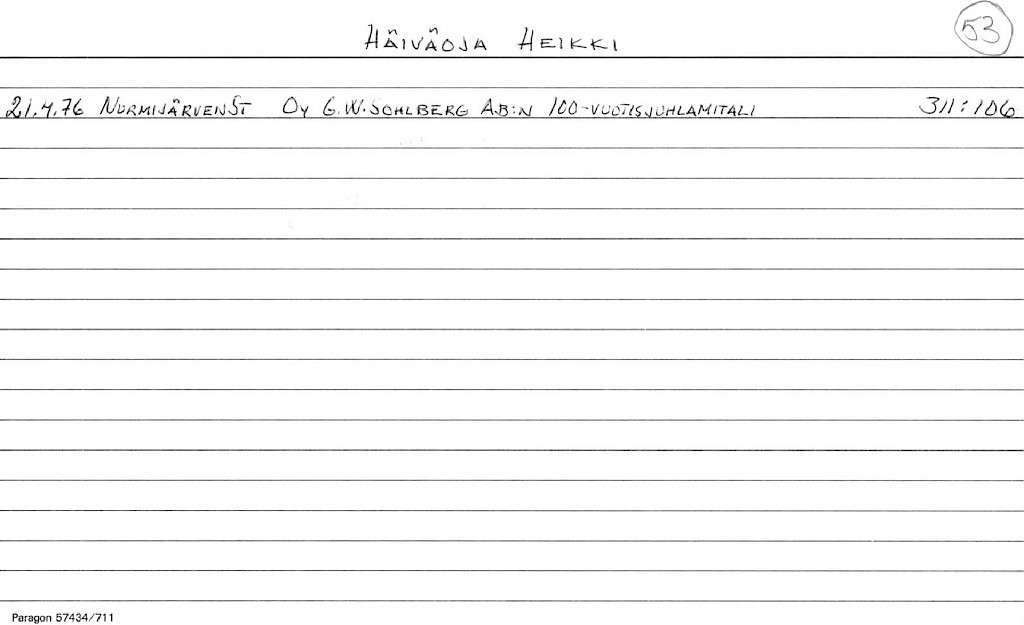 HÄIVÄOJA HEIKKI 53
21.4.76 NURMIJÄRVEN ST OY G.W. SOHLBERG AB:N 100-VUOTISJUHLAMITALI 311:106
Paragon 57434/711